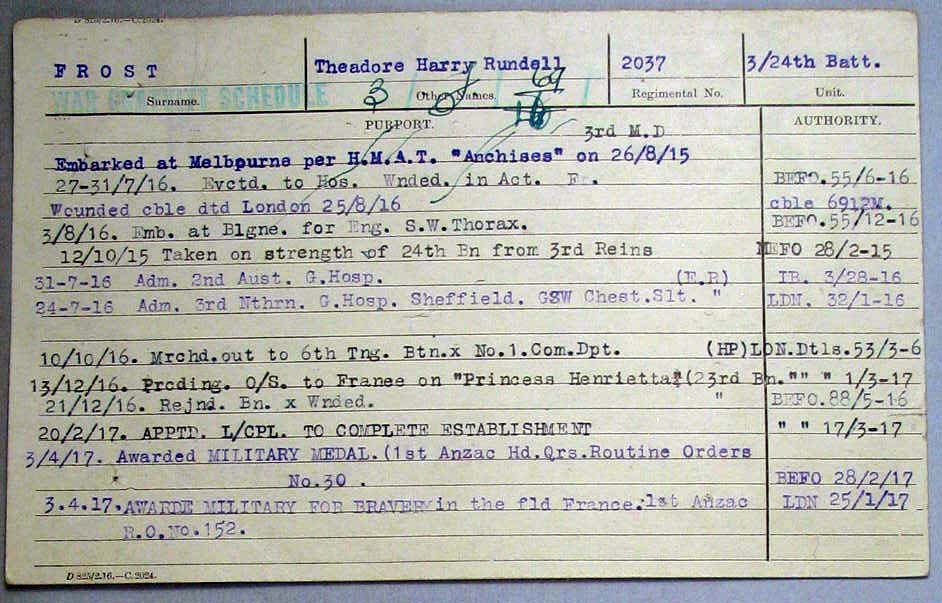 D 825/2.16.—C.2024.
FROST Theadore Harry Rundell 2037 3/24th Batt.
WAR GRATUITY SCHEDULE
Surname. Other Names. Regimental No. Unit.
3 69
16
PURPORT. AUTHORITY.
3rd M.D
Embarked at Melbourne per H.M.A.T. "Anchises" on 26/8/15
27-31/7/16. Evctd. to Hos. Wnded. in Act. F . BEFO.55/6-16
Wounded cble dtd London 25/8/16 cble 6912M.
3/8/16. Emb. at Blgne. for Eng. S.W.Thorax. BEFO.55/12-16
12/10/15 Taken on strength of 24th Bn from 3rd Reins MEFO 28/2-15
31-7-16 Adm. 2nd Aust. G.Hosp. (E.R) IR. 3/28-16
24-7-16 Adm. 3rd Nthrn. G.Hosp. Sheffield. GSW Chest.Slt. " LDN. 32/1-16
10/10/16. Mrchd.out to 6th Tng. Btn.x No.1.Com.Dpt. (HP)LON.Dtls.53/3-6
13/12/16. Prcding. O/S. to Franee on "Princess Henrietta"(23rd Bn."" " 1/3-17
21/12/16. Rejnd. Bn. x Wnded. " BEFO.88/5-16
20/2/17. APPTD. L/CPL. TO COMPLETE ESTABLISHMENT " " 17/3-17
3/4/17. Awarded MILITARY MEDAL.(1st Anzac Hd.Qrs.Routine Orders
No.30 . BEFO 28/2/17
3.4.17.AWARDE MILITARY FOR BRAVERY in the fld France.1st Anzac LDN 25/1/17
R.O.No.152.
D 825/2.16.—C.2024.